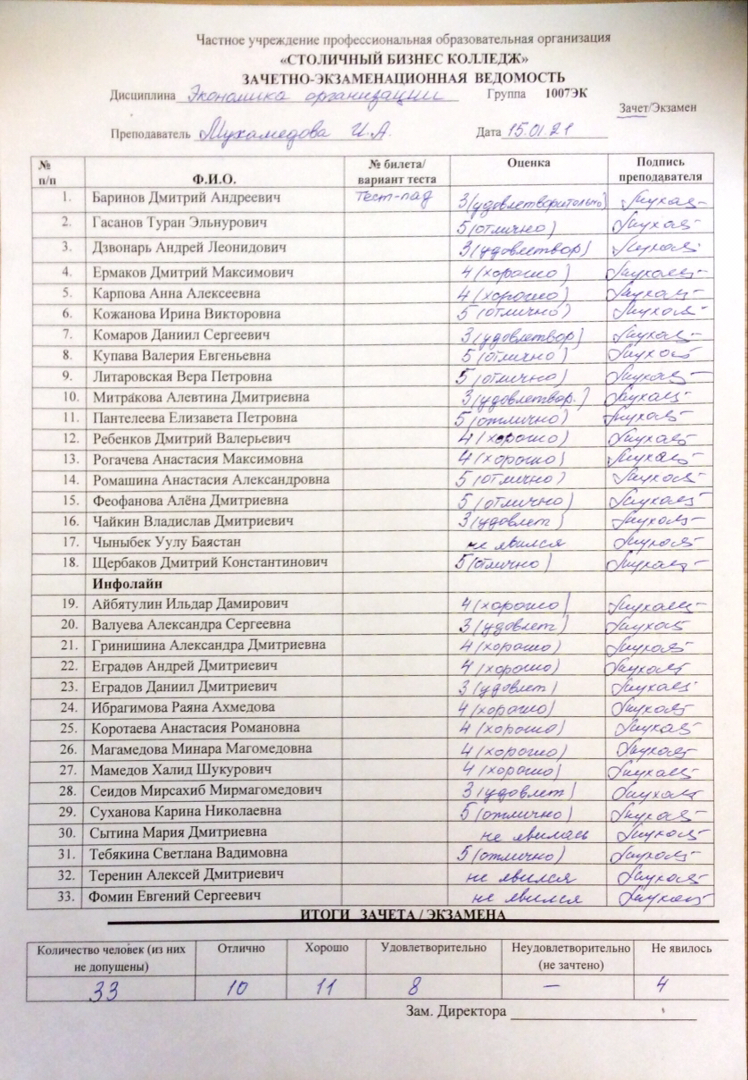 Частное учреждение профессиональная образовательная организация
«СТОЛИЧНЫЙ БИЗНЕС КОЛЛЕДЖ»
ЗАЧЕТНО-ЭКЗАМЕНАЦИОННАЯ ВЕДОМОСТЬ
Дисциплина Экономика организации Группа 1007ЭК
Зачет/Экзамен
Преподаватель Мухамедова И.А. Дата 15.01.21
№ п/п Ф.И.О. № билета/ вариант теста Оценка Подпись преподавателя
1. Баринов Дмитрий Андреевич Тест-пад 3 (удовлетворительно)
2. Гасанов Туран Эльнурович 5 (отлично)
3. Дзвонарь Андрей Леонидович 3 (удовлетвор)
4. Ермаков Дмитрий Максимович 4 (хорошо)
5. Карпова Анна Алексеевна 4 (хорошо)
6. Кожанова Ирина Викторовна 5 (отлично)
7. Комаров Даниил Сергеевич 3 (удовлетвор)
8. Купава Валерия Евгеньевна 5 (отлично)
9. Литаровская Вера Петровна 5 (отлично)
10. Митракова Алевтина Дмитриевна 3 (удовлетвор.)
11. Пантелеева Елизавета Петровна 5 (отлично)
12. Ребенков Дмитрий Валерьевич 4 (хорошо)
13. Рогачева Анастасия Максимовна 4 (хорошо)
14. Ромашина Анастасия Александровна 5 (отлично)
15. Феофанова Алёна Дмитриевна 5 (отлично)
16. Чайкин Владислав Дмитриевич 3 (удовлет)
17. Чыныбек Уулу Баястан не явился
18. Щербаков Дмитрий Константинович 5 (отлично)
Инфолайн
19. Айбятулин Ильдар Дамирович 4 (хорошо)
20. Валуева Александра Сергеевна 3 (удовлет)
21. Гринишина Александра Дмитриевна 4 (хорошо)
22. Еградов Андрей Дмитриевич 4 (хорошо)
23. Еградов Даниил Дмитриевич 3 (удовлет)
24. Ибрагимова Раяна Ахмедова 4 (хорошо)
25. Коротаева Анастасия Романовна 4 (хорошо)
26. Магамедова Минара Магомедовна 4 (хорошо)
27. Мамедов Халид Шукурович 4 (хорошо)
28. Сеидов Мирсахиб Мирмагомедович 3 (удовлет)
29. Суханова Карина Николаевна 5 (отлично)
30. Сытина Мария Дмитриевна не явилась
31. Тебякина Светлана Вадимовна 5 (отлично)
32. Теренин Алексей Дмитриевич не явился
33. Фомин Евгений Сергеевич не явился
ИТОГИ ЗАЧЕТА / ЭКЗАМЕНА
Количество человек (из них не допущены) Отлично Хорошо Удовлетворительно Неудовлетворительно (не зачтено) Не явилось
33 10 11 8 — 4
Зам. Директора